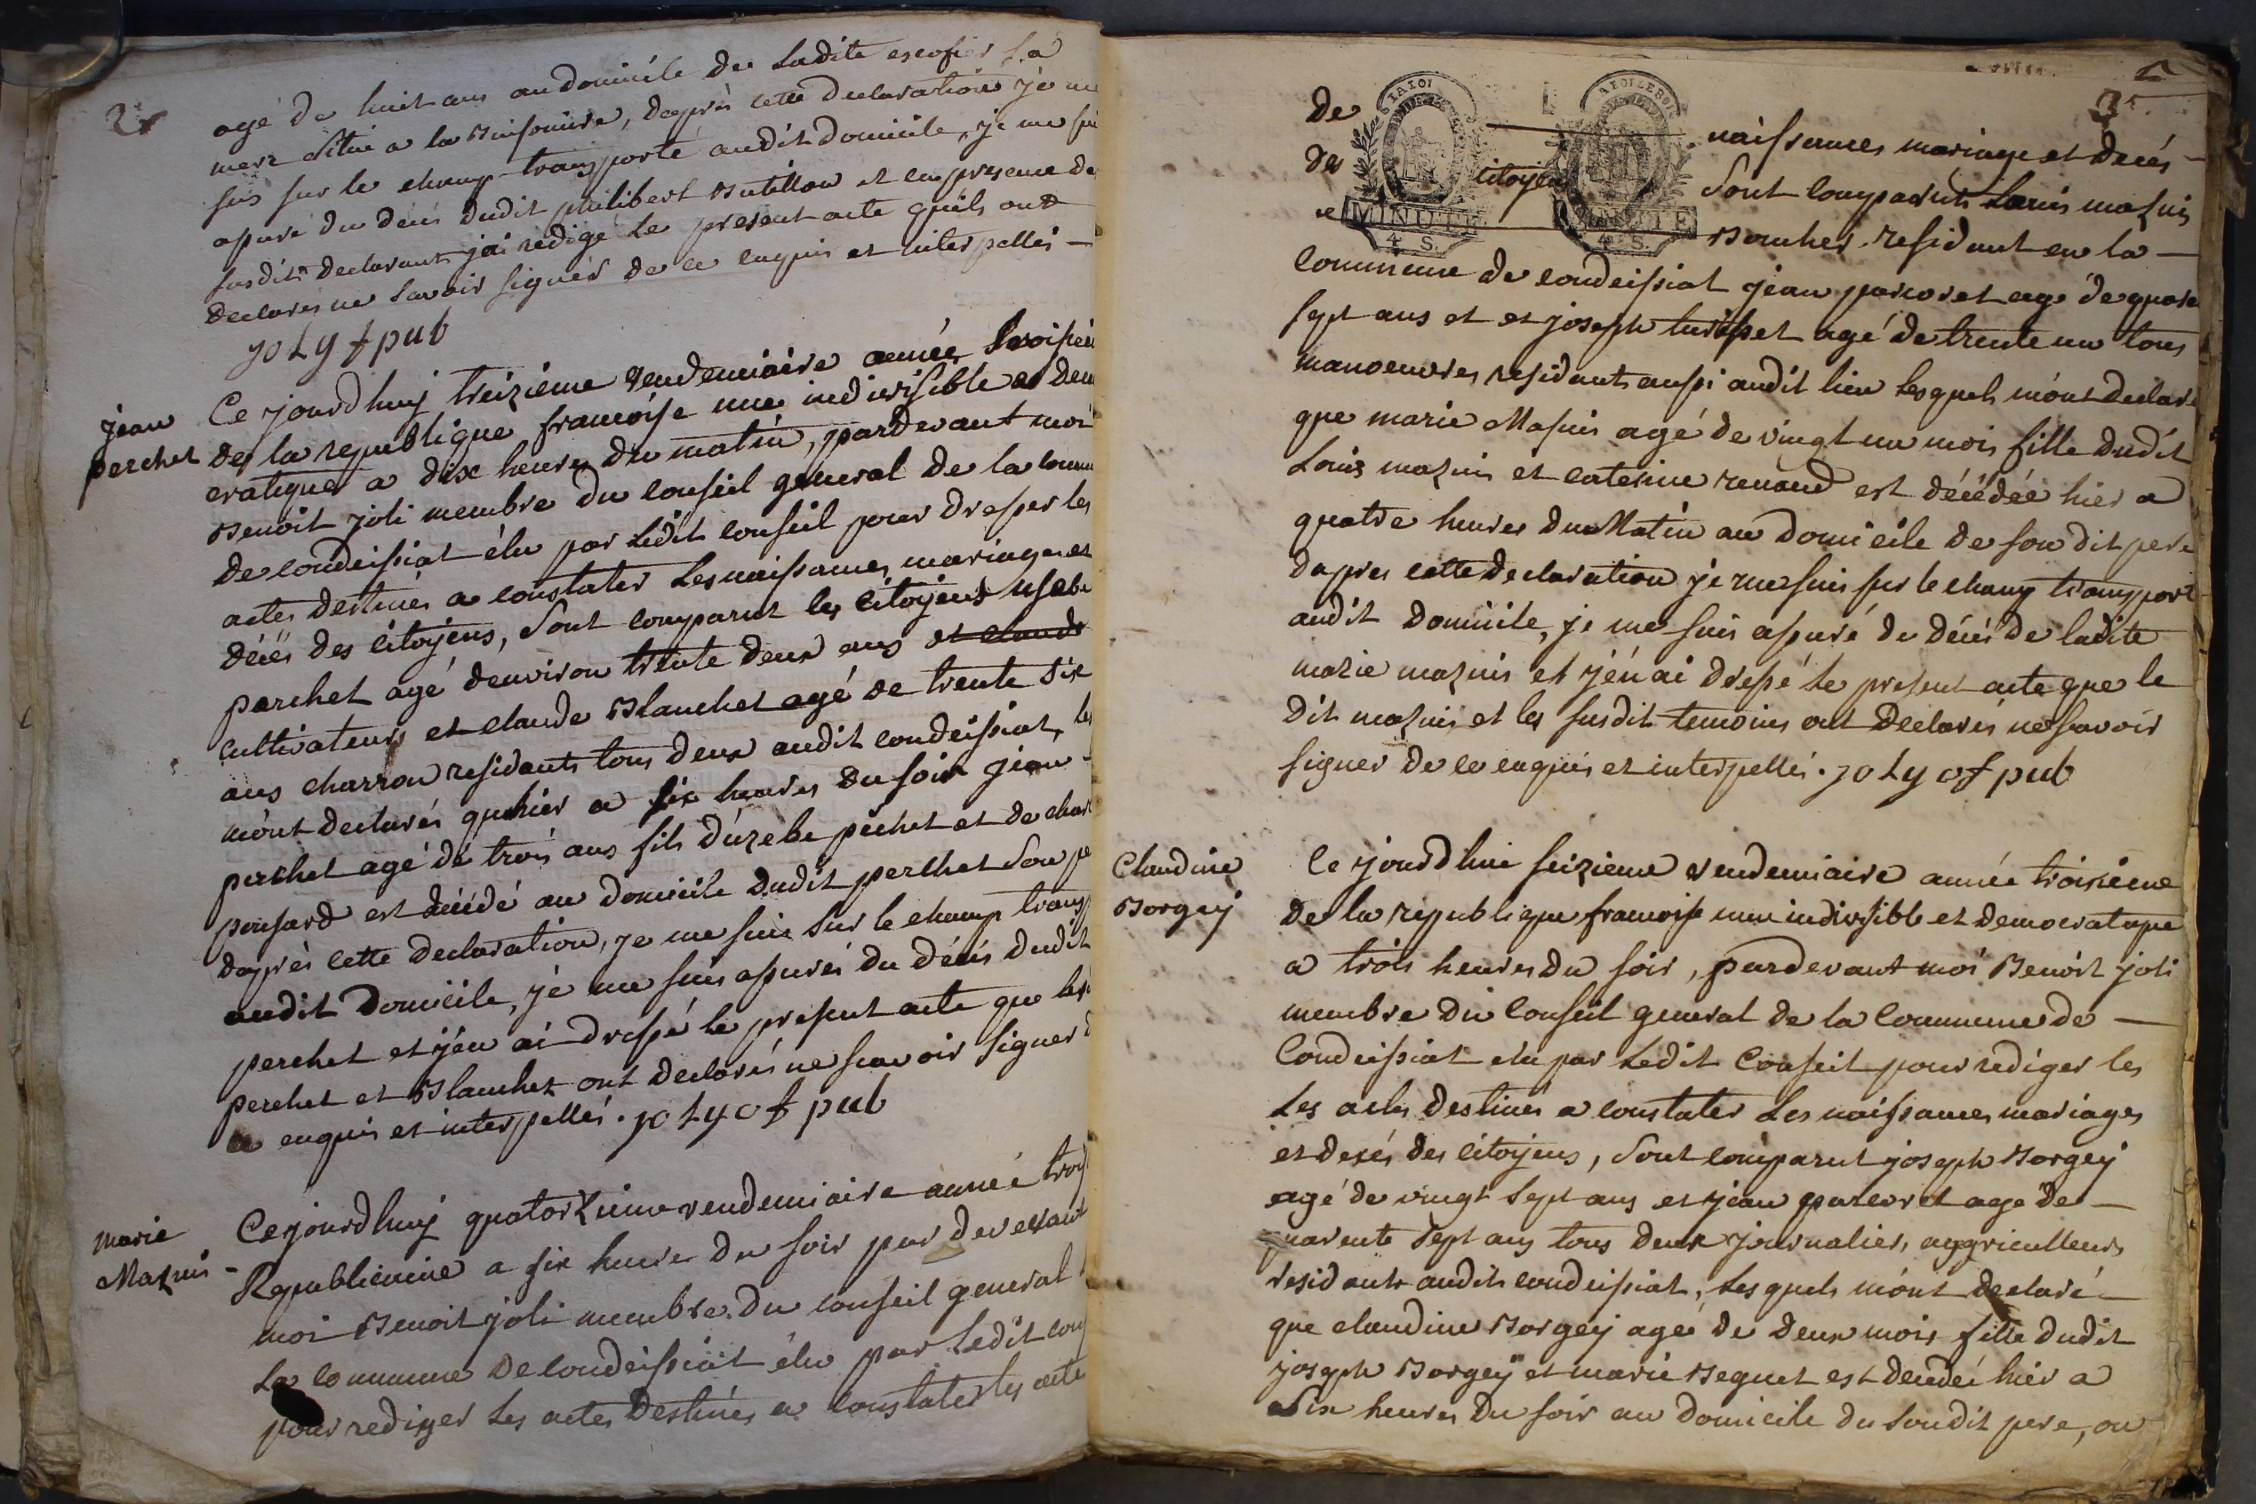 2
agé de huit ans au domicile de Ladite escofier Sa
mere Situé a la Buisoniere, daprès cette declaration je me
suis sur le champ transporté audit domicile, je me sui
assuré du décés dudit philibert Butillon et en presence de
susdits declarants jai redigé Le present acte quils ont
declarés ne Savoir signer de ce enquis et interpellés —
joLy of pub
jean
perchet
Ce jourdhuy treizieme vendemiaire année troisieme
de la republique francoise une indivisible et dem
cratique a dix heures du matin, pardevant moi
Benoit joli membre du conseil general de la commune
de condeissiat élu par Ledit conseil pour dresser les
actes destinés a constater Les naissances mariages et
décés des citoyens, Sont comparut les citoyens usebe
perchet agé denviron trente deux ans et claude
cultivateurs et claude Blanchet agé de trente six
ans charron residants tous deux audit condeissiat, les
mónt declarés quhier a six heures du soir jean
perchet agé de trois ans fils dúzebe péchet et de
ponsard est décédé au domicile dudit perchet Son pe
daprès cette declaration, je me suis sur le champ transp
audit Domicile, je me suis assurés du décés dudit
perchet et jén ai dressé le present acte que les
perchet et Blanchet ont declarés ne scavoir signer d
ce enquis et interpellés. joLy of pub
marie
Mazuis
Cejourdhuy quatorzieme vendemiaire année trois
Republicaine a six heures du soir par devevant
moi Benoit joli membre du conseil general
La commune de condeissiat élu par Ledit con
pour rediger Les actes Destinés a constater les acte
3
de naissances mariage et decés —
de citoyen Sont comparuts Louis mazuis
Bouchet residant en la —
commune de condeissiat jean parcoret agé de quara
sept ans et et joseph agé de trente un tous
manoeuvres residants aussi audit lieu les quels mónt declaré
que marie Mazuis agé de vingt un mois fille dudit
Louis mazuis et caterine renaud est décédée hier a
quatre heures du Matin au domicile de son dit pere
dapres cette declaration je me suis sur le champ transport
audit domicile, je me suis assuré du décés de ladite
marie mazuis et jén ai dressé le present acte que le
dit mazuis et les susdit temoins ont declarés ne savoir
signer de ce enquis et interpellés. joLy of pub
Claudine
Borgey
Ce jourdhui seizieme vendemiaire année troisieme
de la republique francoise une indivisible et democratique
a trois heures du soir, pardevant moi Benoit joli
membre du Conseil general de la Commune de —
Condeissiat elu par Ledit Conseil pour rediger les
Les actes destinés a constater Les naissances mariages
et decés des citoyens, Sont comparut joseph Borgey
agé de vingt Sept ans et jean parcoret age de —
quarente Sept ans tous deux journaliers, aggriculteurs
residants audit condeissiat, Les quels mónt declaré —
que claudine Borgey agé de deux mois fille dudit
joseph Borgey et marie Beguet est decedée hier a
Six heures du soir au domicile du Soudit pere, ou
MINUTE
4 S.
MINUTE
4 S.